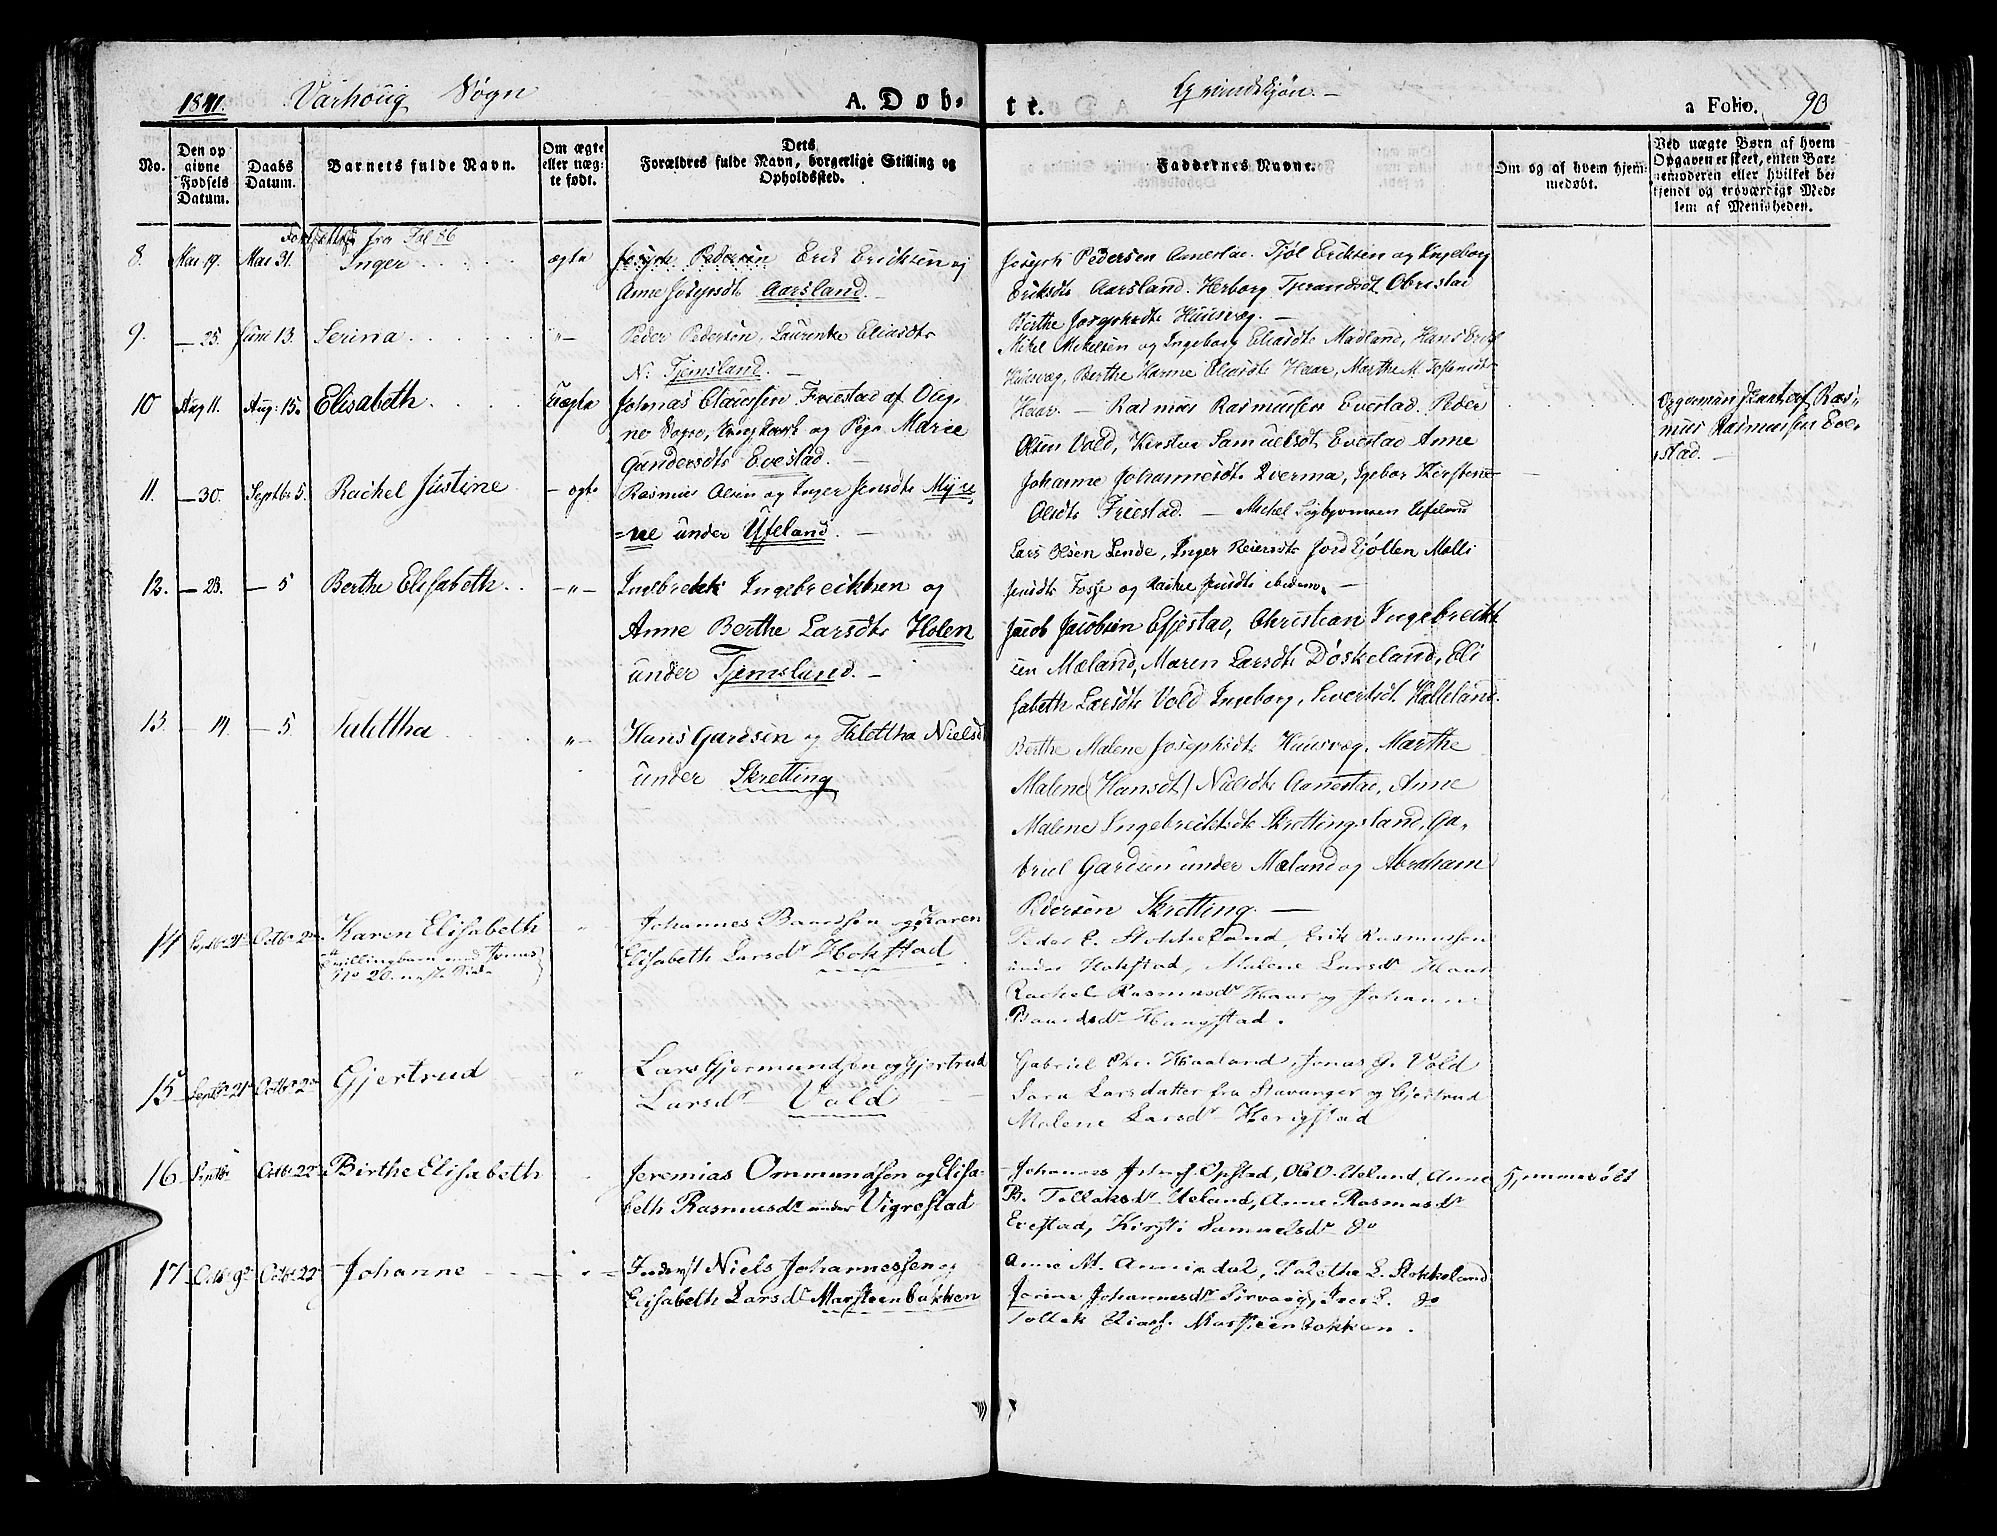 1841. Varhoug Sogn A. Døb-
te. Qvindekjøn. a Folio. 90
No.
Den op
givne
Fødsels
Datum.
Daabs
Datum.
Barnets fulde Navn.
Om ægte
eller uæg-
te født.
Dets
Forældres fulde Navn, borgerlige Stilling og
Opholdssted.
Faddernes Navne.
Om og af hvem hjem-
medøbt.
Ved uægte Børn af hvem
Opgaven er skeet, enten Bar-
nemoderen eller hvilket be-
kjendt og troværdigt Med-
lem af Menigheden.
Fortsættelse fra Fol 86
8. Mai 19. Mai 31. Inger ægte Erik Eriksen og
Anne Josephsdt. Aarsland.
Joseph Pedersen Aanestad. Tjøl Eriksen og Ingeborg
Eriksdt. Aarsland. Herborg Tjerandsdt Obrestad
Berthe Josephsdt. Huusvæg.
9. — 25. Juni 13. Serina —"— Peder Pedersen, Laurentse Eliasdt.
N. Tjemsland.
Mikel Mikelsen og Ingeborg Eliasdt. Madland, Hans Erik
Huusvæg, Berthe Karine Eliasdt. Haar, Marthe M. Tostensdt.
Haar.
10 Aug 11. Aug: 15. Elisabeth Uægte Johnas Claussen Friestad af Oig-
ne Sogn, Ungkarl og Pige Marie
Gundersdt. Evestad.
Rasmus Rasmussen Evestad, Peder
Olsen Vold, Kirsten Samuelsdt. Evestad Anne
Johanne Johannesdt. Qverma, Igebor Kirstene
Olsdt. Friestad.
Opgaven skeet af Ras-
mus Rasmussen Eve-
stad.
11. — 30. Septbr 5. Rachel Justine — ægte Rasmus Olsen og Inger Jensdt. Myre-
=ne under Ueland.
Mikel Sigbjørnsen Ueland
Lars Olsen Lende, Inger Reiersdt. Jordkjollen Malli
Jensdt. Fosse og Rachel Jensdt. ibidem.
12. — 23. — 5 Berthe Elisabeth —"— Ingebrekt Ingebreiktsen og
Anne Berthe Larsdt. Holen
under Tjemsland.
Jacob Jacobsen Efjestad, Christian Ingebreikt
sen Mæland, Maren Larsdt. Døskeland, Eli
sabeth Larsdt. Vold Ingeborg, Evertsdt. Holleland.
13. — 14. — 5 Talettha "— Hans Gardsen og Talettha Nielsdt
under Skretting
Berthe Malene Josephsdt. Huusvæg. Marthe
Malene (Hansdt.) Nielsdt. Aanestad, Anne
Malene Ingebreiktsdt. Skrettingsland, Ga-
briel Gardsen under Mæland og Abraham
Pedersen Skretting.
14 Septbr 21 Octbr 2 Karen Elisabeth
Tvillingbarn med Jonas
No 20. næste Side
Johannes Baardsen og Karen
Elisabeth Larsdr. Hokstad
Peder E. Stokkeland, Erik Rasmussen
under Hokstad, Malene Larsdr. Haar
Rachel Rasmusdr. Haar og Johanne
Baardsdr. Haugstad.
15 Septbr 21 Octbr 2 Gjertrud Lars Gjermundsen og Gjertrud
Larsdr. Vold
Gabriel Chr. Haaland, Jonas G. Vold
Sara Larsdatter fra Stavanger og Gjertrud
Malene Larsdr. Herigstad
16 Septbr Octbr 22 Birthe Elisabeth Jeremias Ommundsen og Elisa-
beth Rasmusdr. under Vigrestad
Johannes Opstad, Ole O. Ueland, Anne
B. Tollaksdr. Ueland, Anne Rasmusdr.
Evestad, Kirsti Samuelsdr. do
Hjemmedøbt
17 Octbr 9 Octbr 22 Johanne Inderst Niels Johannessen og
Elisabeth Larsdr. Marsteenbakken
Anne M. Anniedal, Taletha L. Stokkeland
Jorine Johannesdr. Sirvaag, Iver L. do
Tollak Eliass. Marsteenbakken.